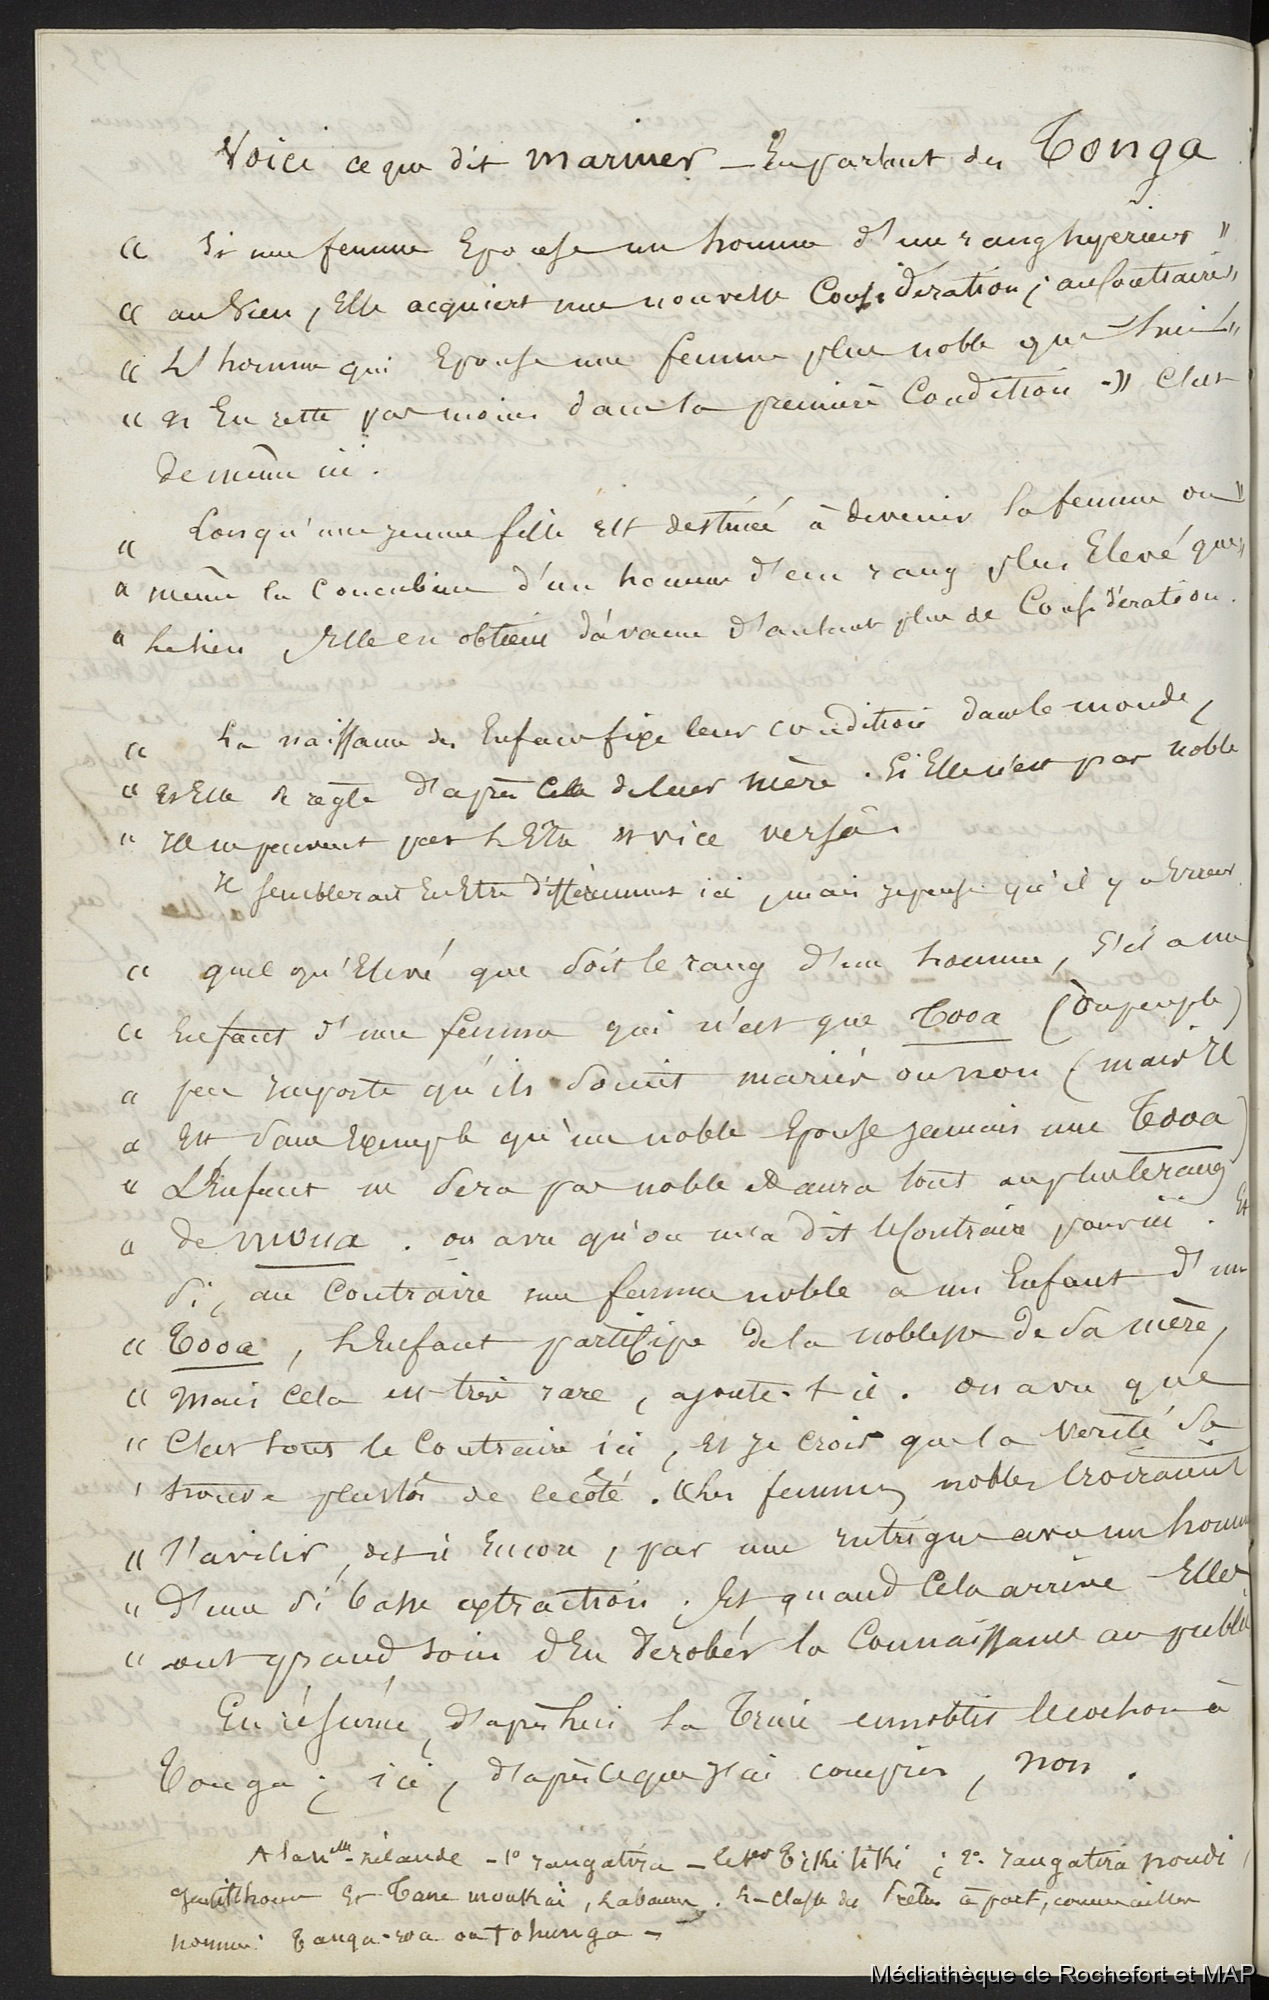 Voici ce que dit mariner - En parlant des Tonga
« Si une femme Epouse un homme d'un rang supérieur »
« au sien, Elle acquiert une nouvelle Considération ; au Contraire »
« L'homme qui Epouse une femme plus noble que lui »
« n'En reste pas moins dans la première Condition -» C'est
de même ici.
« Lorsqu'une jeune fille est destinée à devenir la femme ou »
« même la Concubine d'un homme d'un rang plus Elevé que »
« le sien, Elle en obtient d'avance d'autant plus de Considération.
« La naissance des Enfans fixe leur condition dans le monde,
« Et Elle se règle d'après Celle de leur mère. Si Elle n'est pas noble
« Ils ne peuvent pas l'Etre et vice versâ.
Il semblerait En Etre différemment ici, mais je pense qu'il y a Erreur
« quel qu'Elevé que soit le rang d'un homme, s'il a un
« Enfant d'une femme qui n'est que Tooa (du peuple)
« peu importe qu'ils soient mariés ou non (mais Il
« Est sans Exemple qu'un noble Epouse jamais une Tooa)
« L'Enfant ne sera pas noble et aura tout au plus le rang
« de moua. on a vu qu'on m'a dit le Contraire pour ici. Et
si, au Contraire une femme noble a un Enfant d'un
« Tooa, L'Enfant participe de la noblesse de sa mère,
« Mais Cela est très rare, ajoute-t-il. on a vu que
« C'est tout le Contraire ici, Et je crois que la verité se
' trouve plustôt de ce côté. «Les femmes nobles Croiraient
« s'avilir, dit-il Encore, par une Intrigue avec un homme
« d'une si basse extraction. Et quand Cela arrive Elles
« ont grand soin d'En dérober la Connaissance au public
En résumé, d'après lui la Truie ennoblit le cochon à
Tonga ; ici, d'après ce que J'ai compris, non.
A la nlle-zélande - 1° rangatira - Tiki tiki ; 2°. rangatira noudi
gentilhomme Et Tane moukai, . La Classe des Prêtres à part, comme ailleurs
nommée Tanga-roa ou Tohunga -